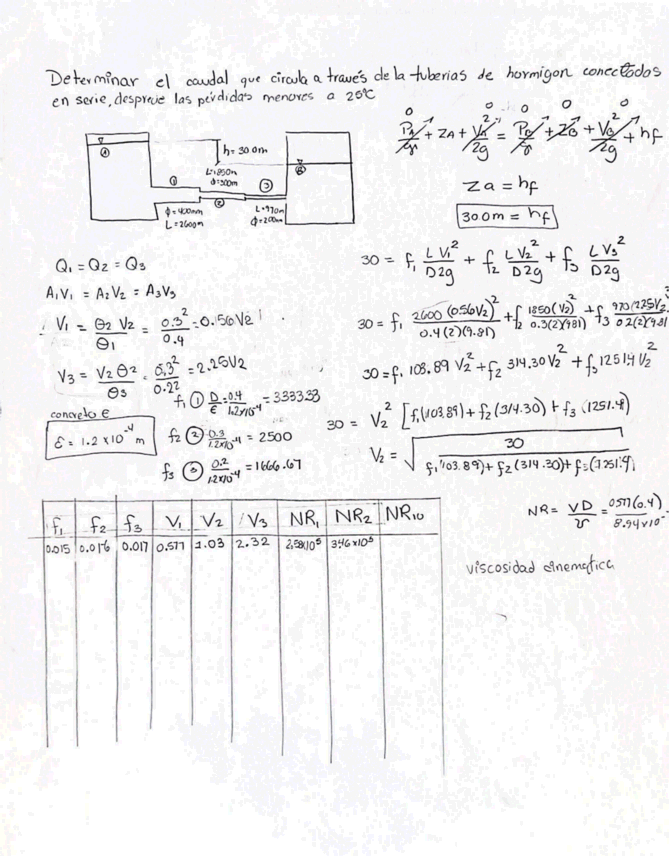 Determinar el caudal que circula a través de la tuberias de hormigon conectados
en serie, desprecie las perdidas menores a 25°C
0 0 0 0 0
PA/γ + ZA + VA²/2g = PB/γ + ZB + VB²/2g + hf
Za = hf
30.0m = hf
A
h = 30.0m
B
L=1850m
φ=300m
①
②
③
φ = 400mm
L = 2600m
L=970m
φ=200m
Q1 = Q2 = Q3
A1V1 = A2V2 = A3V3
V1 = θ2 V2 / θ1 = 0.3² / 0.4 = 0.156V2
V3 = V2 θ² / θ3 = 0.3² / 0.22 = 2.25V2
concreto ε
ε = 1.2 x 10⁻⁴ m
f1 ① D/ε = 0.4 / 1.2x10⁻⁴ = 3333.33
f2 ② 0.3 / 1.2x10⁻⁴ = 2500
f3 ③ 0.2 / 1.2x10⁻⁴ = 1666.67
30 = f1 L V1² / D2g + f2 L V2² / D2g + f3 L V3² / D2g
30 = f1 2600 (0.56V2)² / 0.4(2)(9.81) + f2 1850(V2)² / 0.3(2)(9.81) + f3 970(2.25V2)² / 0.2(2)(9.81
30 = f1 103.89 V2² + f2 314.30 V2² + f3 1251.4 V2²
30 = V2² [f1(103.89) + f2(314.30) + f3 (1251.4)
V2 = √ 30 / f1(103.89) + f2(314.30) + f3(1251.4)
NR = VD / υ = 0.577(0.4) / 8.94x10⁻
viscosidad cinematica
f1 f2 f3 V1 V2 V3 NR1 NR2 NR10
0.015 0.016 0.017 0.577 1.03 2.32 2.58x10⁵ 3.46x10⁵